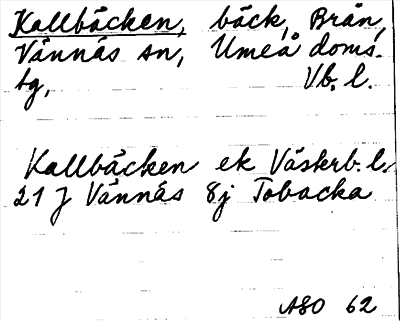 Kallbäcken, bäck, Brån,
Vännäs sn, Umeå doms.
tg, Vb. l.
Kallbäcken ek Västerb. l.
21 J Vännäs 8j Tobacka
ASO 62